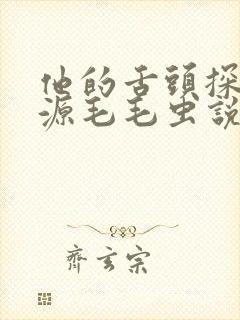 他的舌頭探
源毛毛虫說
齊玄宗